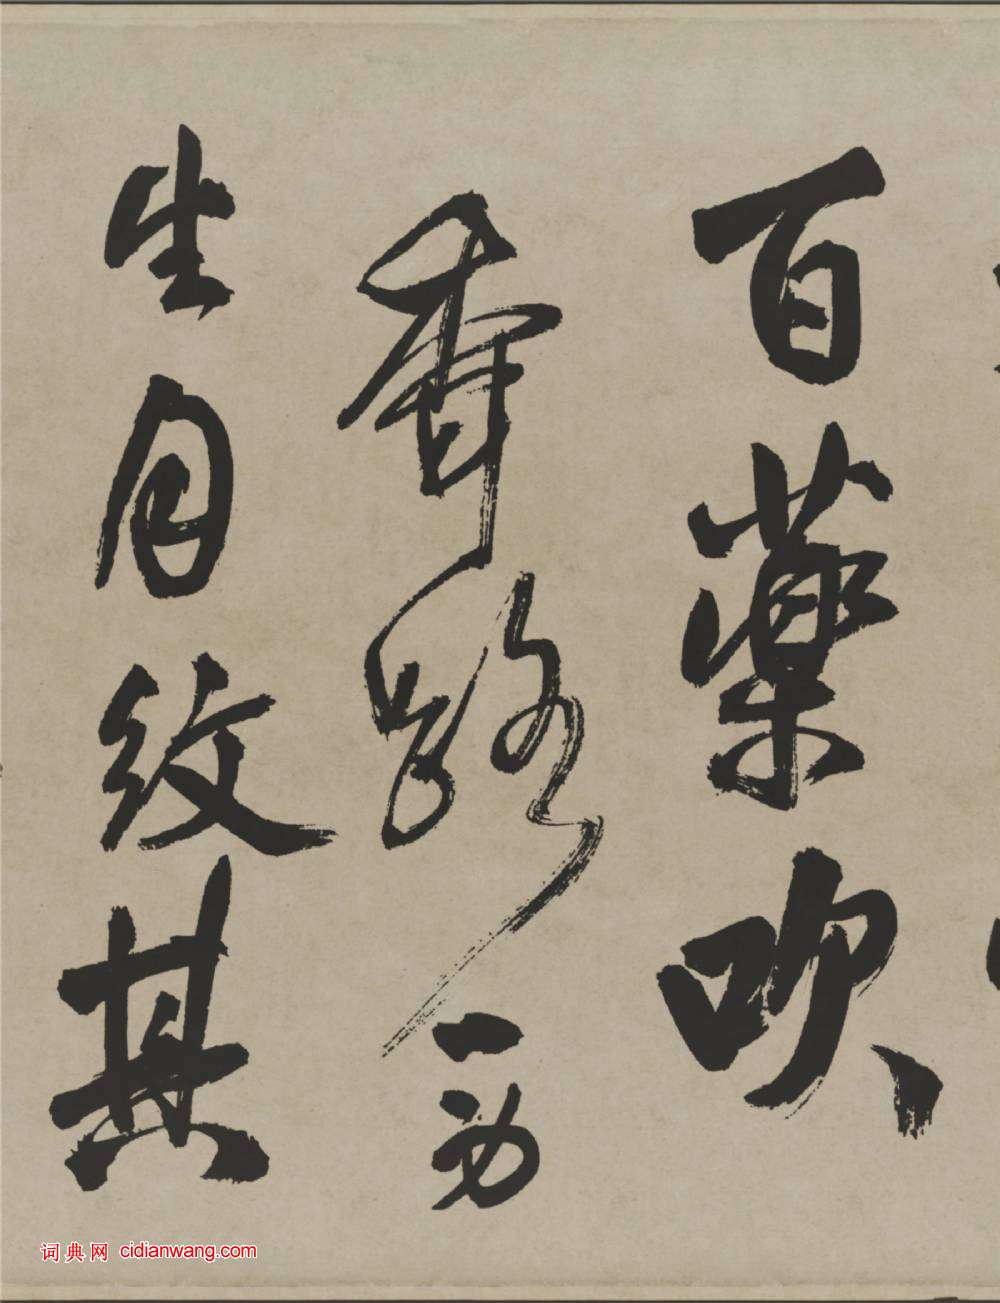 百藥吹
香路一
生 紋其
词典网 cidianwang.com